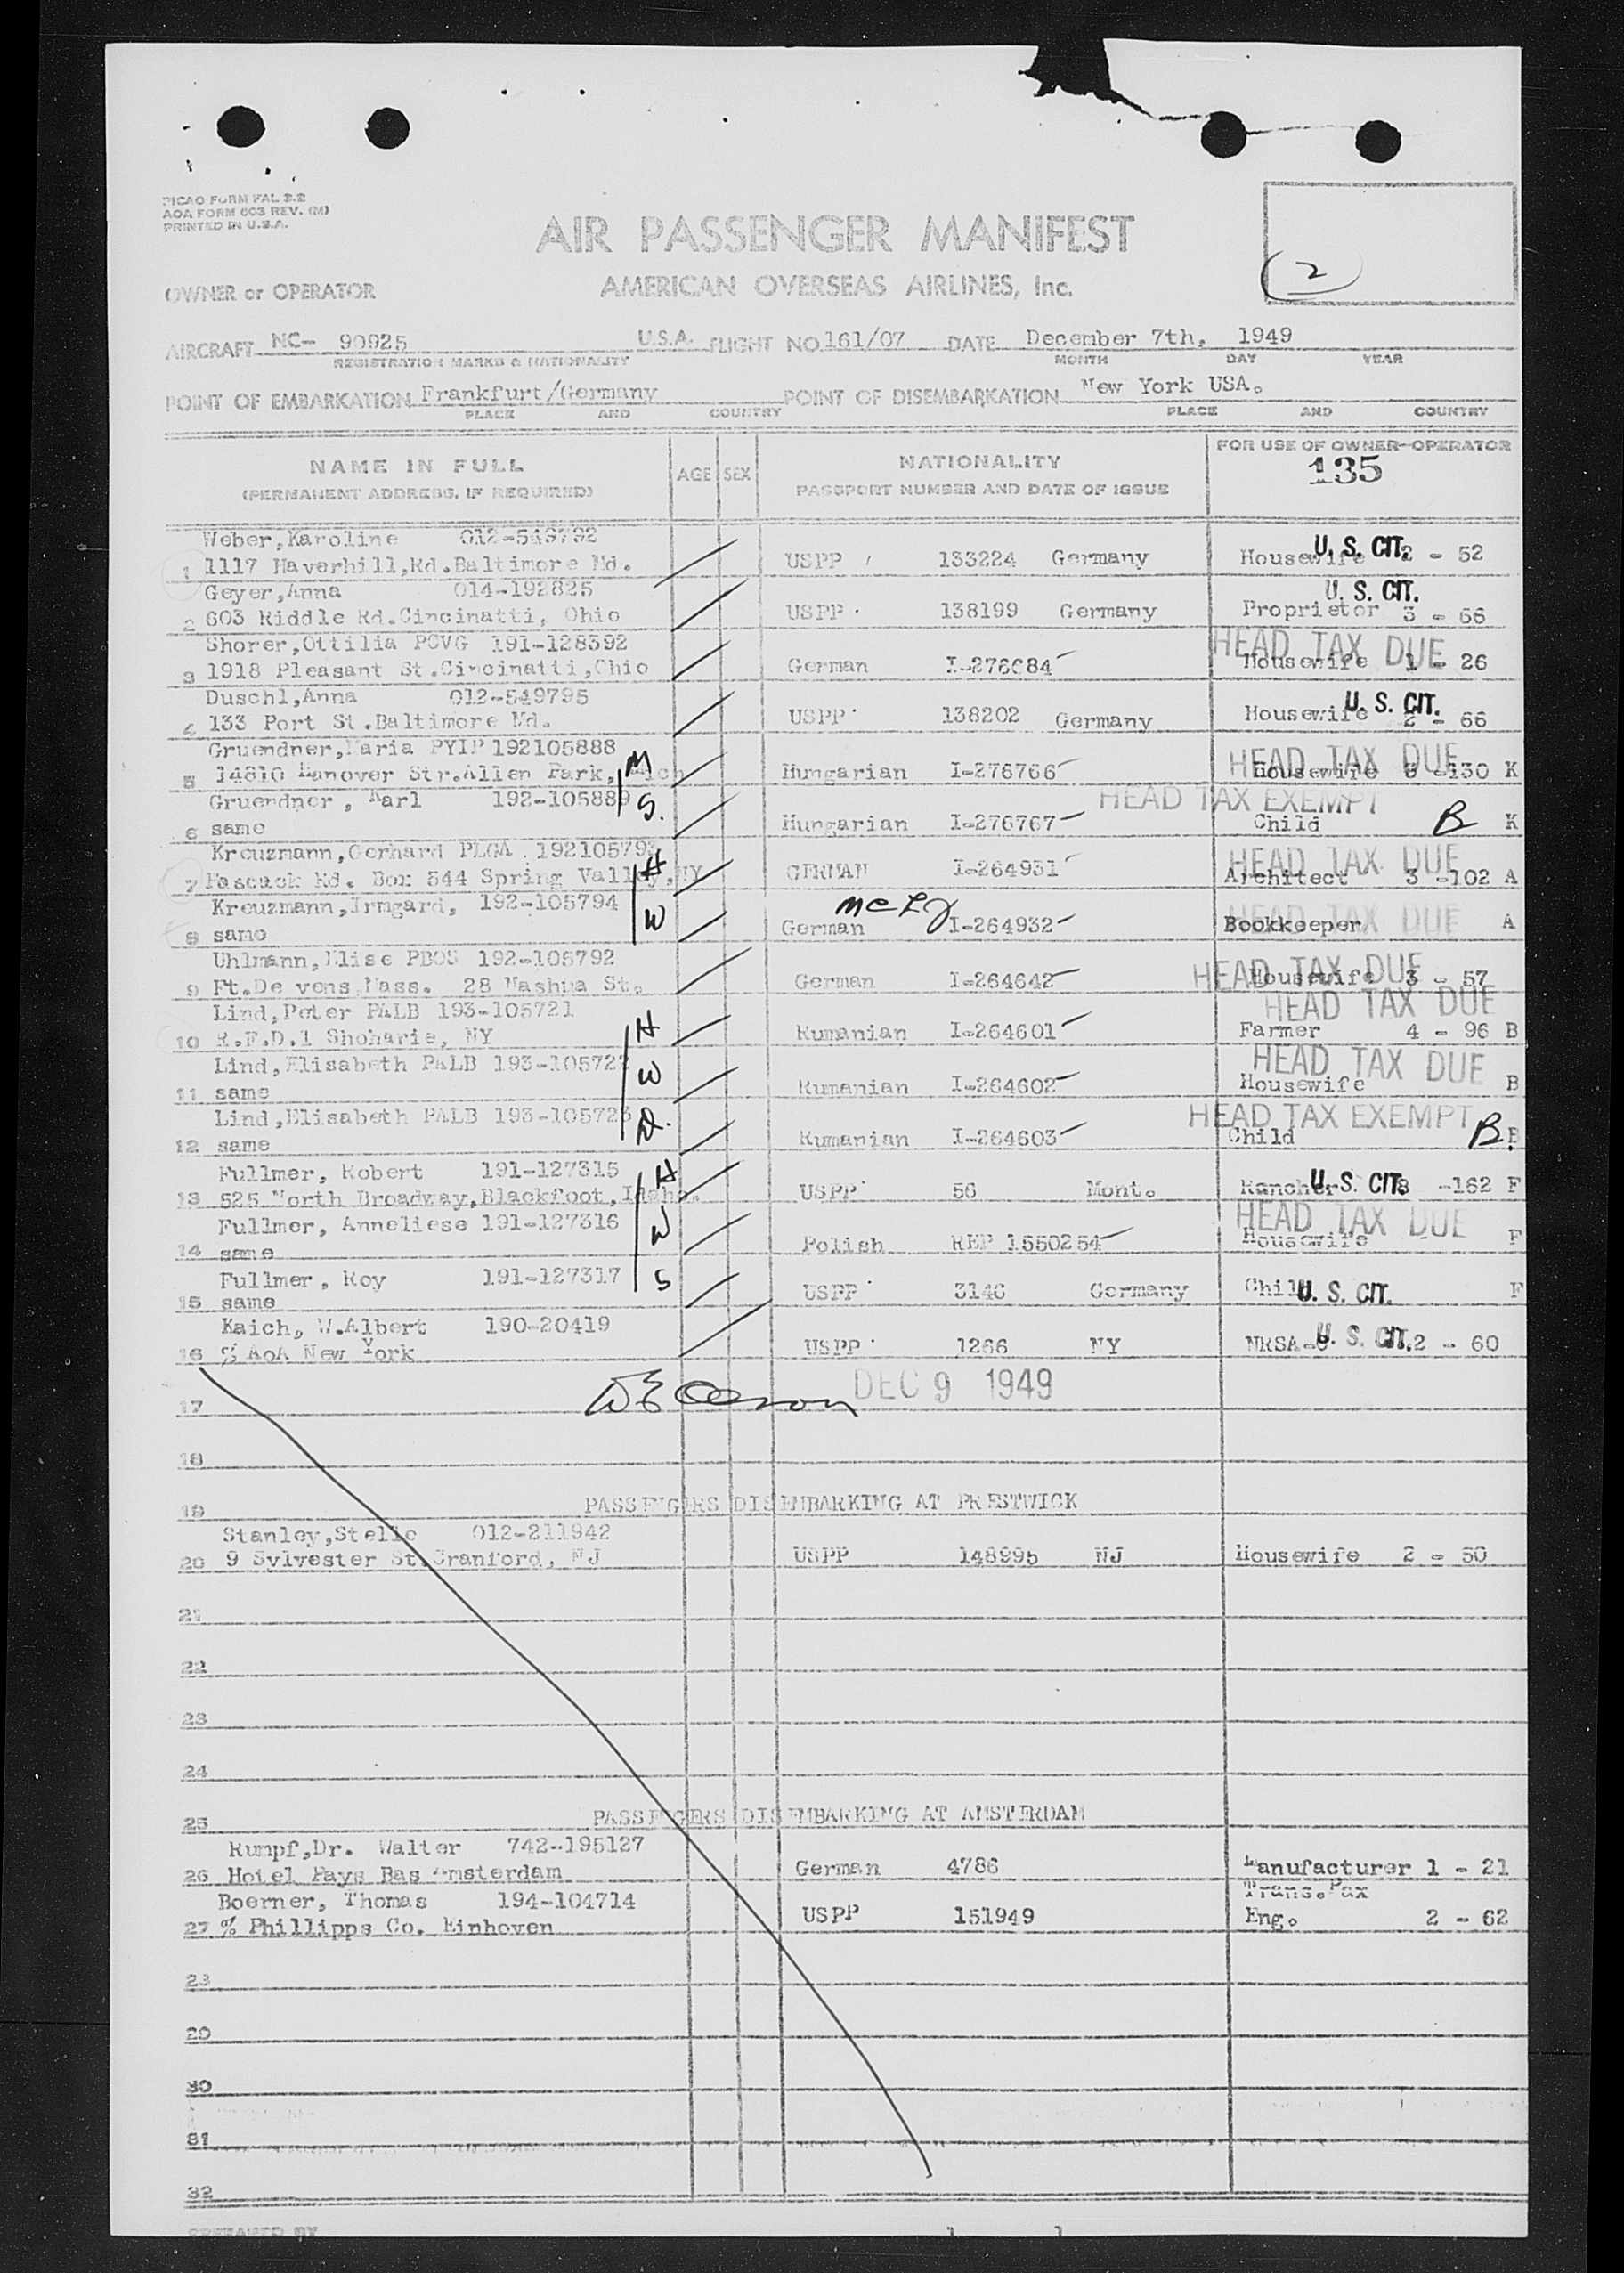 PICAO FORM FAL 2.2
AOA FORM 603 REV. (M)
PRINTED IN U.S.A.
AIR PASSENGER MANIFEST
2
OWNER or OPERATOR AMERICAN OVERSEAS AIRLINES, Inc.
AIRCRAFT NC- 90925 U.S.A. FLIGHT NO. 161/07 DATE December 7th, 1949
REGISTRATION MARKS & NATIONALITY MONTH DAY YEAR
POINT OF EMBARKATION Frankfurt/Germany POINT OF DISEMBARKATION New York USA.
PLACE AND COUNTRY PLACE AND COUNTRY
NAME IN FULL AGE SEX NATIONALITY FOR USE OF OWNER-OPERATOR
(PERMANENT ADDRESS, IF REQUIRED) PASSPORT NUMBER AND DATE OF ISSUE 135
Weber,Karoline 012-549792
1 1117 Haverhill,Rd.Baltimore Md. USPP 133224 Germany Housewife U. S. CIT. 2 - 52
Geyer,Anna 014-192825
2 603 Riddle Rd.Cincinatti, Ohio USPP 138199 Germany Proprietor U. S. CIT. 3 - 66
Shorer,Ottilia PCVG 191-128592
3 1918 Pleasant St.Cincinatti,Ohio German I-276684 HEAD TAX DUE Housewife 1 - 26
Duschl,Anna 012-549795
4 133 Port St.Baltimore Md. USPP 138202 Germany Housewife U. S. CIT. 2 - 66
Gruendner,Maria PYIP 192105888 M
5 14810 Hanover Str.Allen Park, Mich Hungarian I-276766 HEAD TAX DUE Housewife 6 -130 K
Gruendner, Karl 192-105889 S.
6 same Hungarian I-276767 HEAD TAX EXEMPT Child B K
Kreuzmann,Gerhard PLGA 19210579 H
7 Pascack Rd. Box 544 Spring Valley,NY GERMAN I-264931 HEAD TAX DUE Architect 3 -102 A
Kreuzmann,Irmgard, 192-105794 W
8 same German I-264932 HEAD TAX DUE Bookkeeper A
Uhlmann,Elise PBOS 192-105792
9 Ft.De vens Mass. 28 Nashua St. German I-264642 HEAD TAX DUE Housewife 3 - 57
Lind,Peter PALB 193-105721 H
10 R.F.D.1 Shoharie, NY Rumanian I-264601 HEAD TAX DUE Farmer 4 - 96 B
Lind,Elisabeth PALB 193-105722 W
11 same Rumanian I-264602 HEAD TAX DUE Housewife B
Lind,Elisabeth PALB 193-105723 D.
12 same Rumanian I-264603 HEAD TAX EXEMPT Child B B
Fullmer, Robert 191-127315 H
13 525 North Broadway,Blackfoot,Idaho. USPP 56 Mont. Rancher U. S. CIT. 3 -162 F
Fullmer, Anneliese 191-127316 W
14 same Polish REP 1550254 HEAD TAX DUE Housewife F
Fullmer, Roy 191-127317 S
15 same USPP 3146 Germany Child U. S. CIT. F
Kaich, W.Albert 190-20419
16 % AoA New York USPP 1266 NY NRSA U. S. CIT. 2 - 60
17 DEC 9 1949
18
19 PASSENGERS DISEMBARKING AT PRESTWICK
Stanley,Stelle 012-211942
20 9 Sylvester St.Cranford, NJ USPP 148995 NJ Housewife 2 - 50
21
22
23
24
25 PASSENGERS DISEMBARKING AT AMSTERDAM
Rumpf,Dr. Walter 742-195127
26 Hotel Pays Bas Amsterdam German 4786 Manufacturer 1 - 21
Boerner, Thomas 194-104714 Trans.Pax
27 % Phillipps Co. Einhoven USPP 151949 Eng. 2 - 62
28
29
30
31
32
PREPARED BY